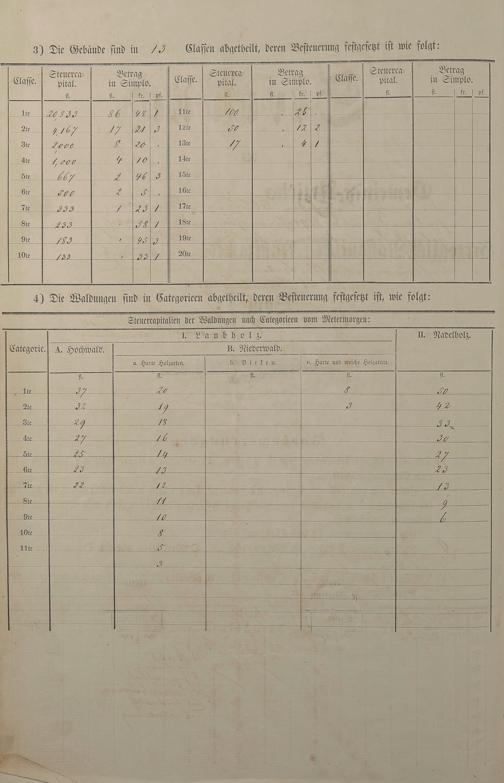 3) Die Gebäude sind in 13 Classen abgetheilt, deren Besteuerung festgesetzt ist wie folgt:
Classe. Steuerca- Betrag Classe. Steuerca- Betrag Classe. Steuerca- Betrag
pital. in Simplo. pital. in Simplo. pital. in Simplo.
fl. fl. kr. pf. fl. fl. kr. pf. fl. fl. kr. pf.
1te 20833 86 48 1 11te 100 . 25 .
2te 4167 17 21 3 12te 50 . 12 2
3te 2000 8 20 . 13te 17 . 4 1
4te 1,000 4 10 . 14te
5te 667 2 46 3 15te
6te 500 2 5 . 16te
7te 333 1 23 1 17te
8te 233 " 58 1 18te
9te 183 " 45 3 19te
10te 133 " 33 1 20te
4) Die Waldungen sind in Categorieen abgetheilt, deren Besteuerung festgesetzt ist, wie folgt:
Steuercapitalien der Waldungen nach Categorieen vom Metermorgen:
I. Laubholz. II. Nadelholz.
Categorie. A. Hochwald. B. Niederwald.
a. Harte Holzarten. b. Birken. c. Harte und weiche Holzarten.
fl. fl. fl. fl. fl.
1te 37 20 8 50
2te 32 19 3 42
3te 29 18 33
4te 27 16 30
5te 25 14 27
6te 23 13 23
7te 22 12 13
8te 11 9
9te 10 6
10te 8
11te 5
3